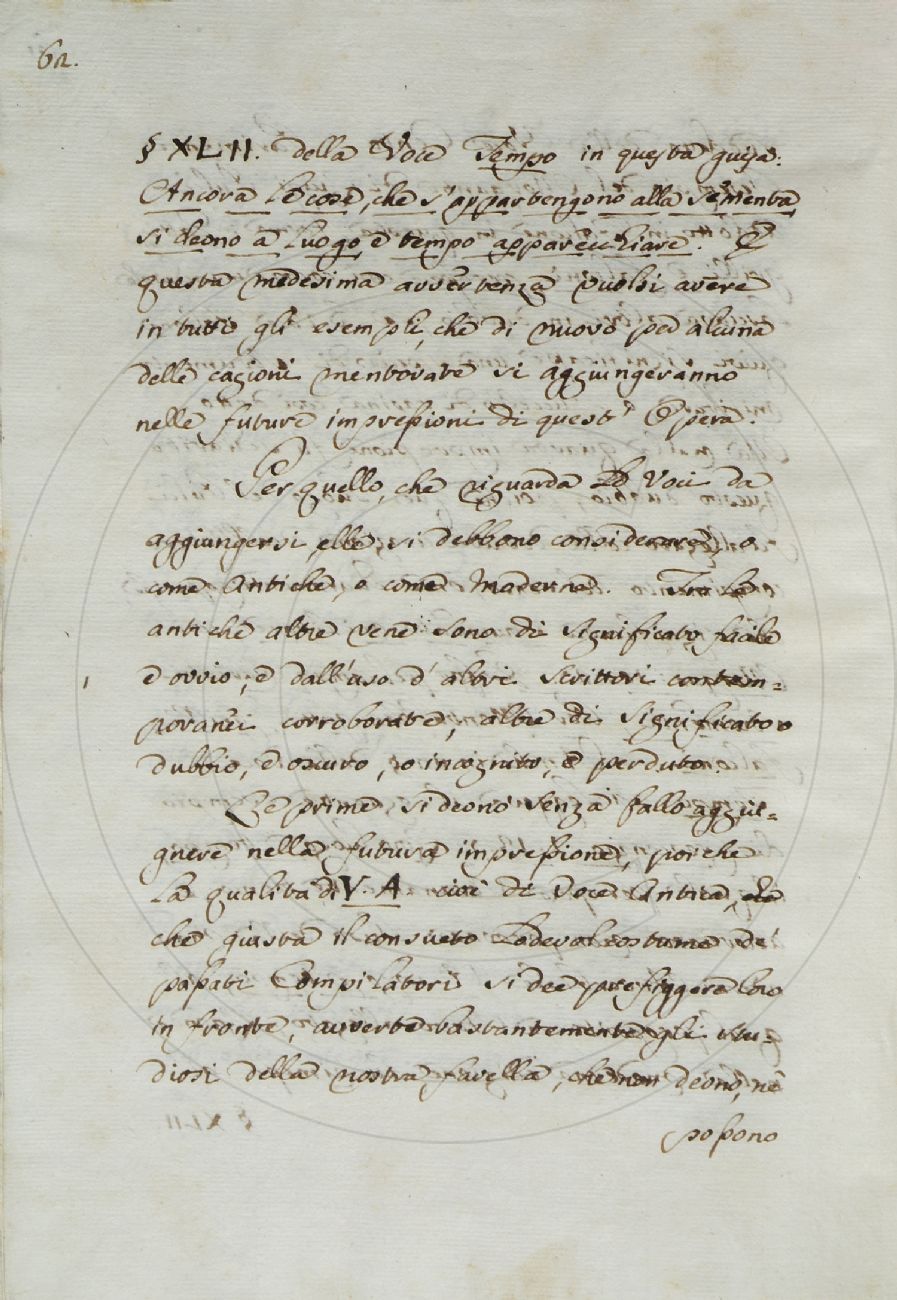 62.
§ XLII. della Voce Tempo in questa guisa:
Ancora le cose, che s'appartengono alla sementa,
si deono a luogo, e tempo apparecchiare. E
questa medesima avvertenza vuolsi avere
in tutti gli esempli, che di nuovo per alcuna
delle cagioni mentovate si aggiungeranno
nelle future impressioni di quest' Opera.
Per quello, che riguarda le Voci da
aggiungersi, elle si debbono considerare, o
come Antiche, o come Moderne. Tra le
antiche altre vene sono di significato facile
e ovvio, e dall'uso d'altri Scrittori contem=
poranei corroborate, altre di significato o
dubbio, e oscuro, o incognito, e perduto.
Le prime si deono senza fallo aggiu=
gnere nella futura impressione, perche
la qualità di V. A cioè di Voce Antica,
che giusta il consueto lodevol costume de'
passati Compilatori si dee prefiggere loro
in fronte, avverte bastantemente gli stu=
diosi della nostra favella, che non deono, nè
possono